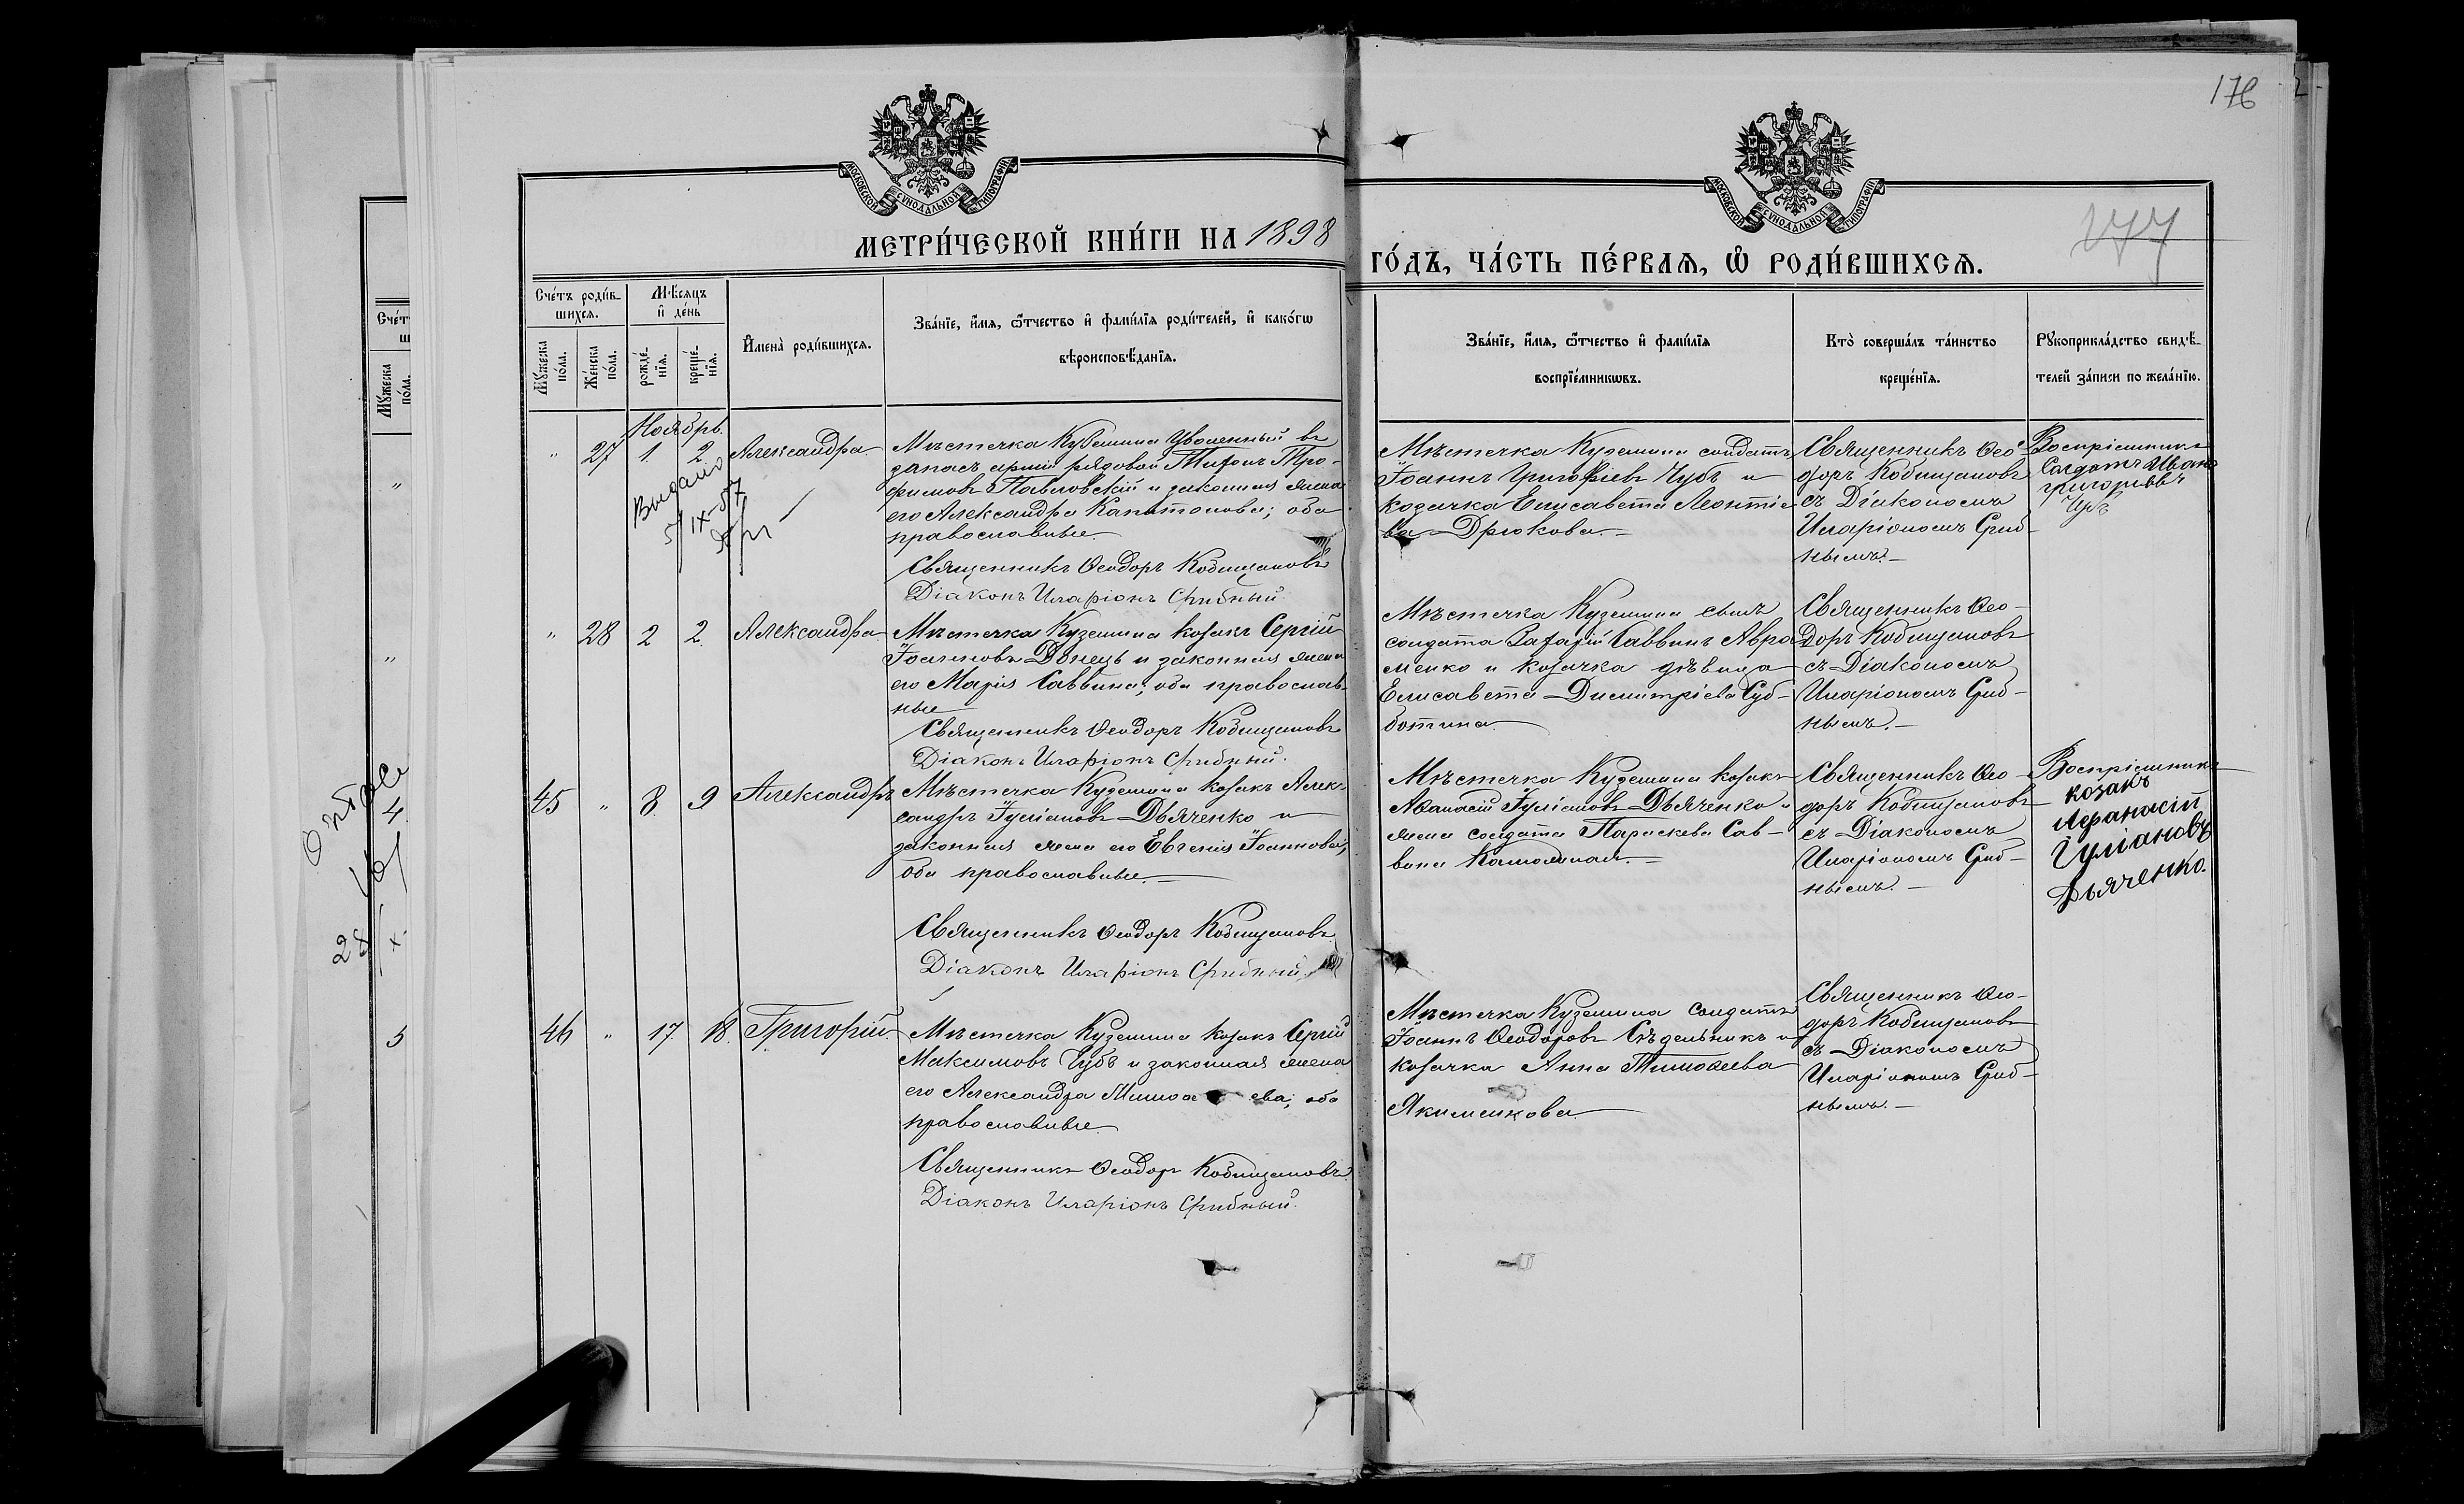 176
177
МОСКОВСКОЙ СѴНОДАЛЬНОЙ ТИПОГРАФІИ
МОСКОВСКОЙ СѴНОДАЛЬНОЙ ТИПОГРАФІИ
МЕТРИ́ЧЕСКОЙ КНИ́ГИ НА 1898
ГО́ДЪ, ЧА́СТЬ ПЕ́РВАѦ, Ѡ РОДИ́ВШИХСѦ.
Сче́тъ роди́в-
шихсѧ.
Мѣ́сѧцъ
и҆ де́нь
Мꙋ́жеска
по́ла.
Же́нска
по́ла.
рожде́-
нїѧ.
креще́-
нїѧ.
И҆мена̀ роди́вшихсѧ.
Зва́нїе, и҆́мѧ, ѻ҆́тчество и҆ фами́лїѧ роди́телей, и҆ како́гѡ
вѣроисповѣ́данїѧ.
Зва́нїе, и҆́мѧ, ѻ҆́тчество и҆ фами́лїѧ
воспрїе́мникѡвъ.
Кто̀ соверша́лъ та́инство
креще́нїѧ.
Рꙋкоприкла́дство свидѣ́-
телей за́писи по жела́нїю.
Ноябрь.
" 27 1. 2. Александра
Выдано
5/IX-57
Мѣстечка Куземина Уволенный въ
запасъ арміи рядовой Миронъ Тро-
фимовъ Павловскій и законная жена
его Александра Капитонова; оба
православные.
Священникъ Ѳеодоръ Кобищановъ
Діаконъ Иларіонъ Срибный.
Мѣстечка Куземина солдатъ
Іоаннъ Григоріевъ Чубъ и
козачка Елисавета Леонтіе-
ва Дрюкова.
Священникъ Ѳео-
доръ Кобищановъ
съ Діакономъ
Иларіономъ Сриб-
нымъ.
Воспріемникъ
Солдатъ Иванъ
григорьевъ
Чубъ
" 28 2 2. Александра
Мѣстечка Куземина козакъ Сергій
Іоанновъ Донецъ и законная жена
его Марія Саввина; оба православ-
ные
Священникъ Ѳеодоръ Кобищановъ
Діаконъ Иларіонъ Срибный.
Мѣстечка Куземина сынъ
солдата Захарій Саввинъ Авра-
менко и козачка дѣвица
Елисавета Димитріева Суб-
ботина.
Священникъ Ѳео-
доръ Кобищановъ
съ Діакономъ
Иларіономъ Сриб-
нымъ.
45 " 8. 9 Александръ
Мѣстечка Куземина козакъ Алек-
сандръ Іуліановъ Дьяченко и
законная жена его Евгенія Іоаннова;
оба православные.
Священникъ Ѳеодоръ Кобищановъ
Діаконъ Иларіонъ Срибный.
Мѣстечка Куземина козакъ
Аѳанасій Іуліановъ Дьяченко и
жена солдата Параскева Сав-
вина
Священникъ Ѳео-
доръ Кобищановъ
съ Діакономъ
Иларіономъ Сриб-
нымъ.
Воспріемникъ
козакъ
Афанасій
Іуліановъ
Дьяченко.
46 " 17. 18. Григорій.
Мѣстечка Куземина козакъ Сергій
Максимовъ Чубъ и законная жена
его Александра ева; оба
православные.
Священникъ Ѳеодоръ Кобищановъ
Діаконъ Иларіонъ Срибный.
Мѣстечка Куземина солдатъ
Іоаннъ Ѳеодоровъ Сѣдельникъ и
козачка Анна Тимоѳеева
Якименкова.
Священникъ Ѳео-
доръ Кобищановъ
съ Діакономъ
Иларіономъ Сриб-
нымъ.
Сче́т
ш
Мꙋ́жеска
по́ла.
"
"
4
5